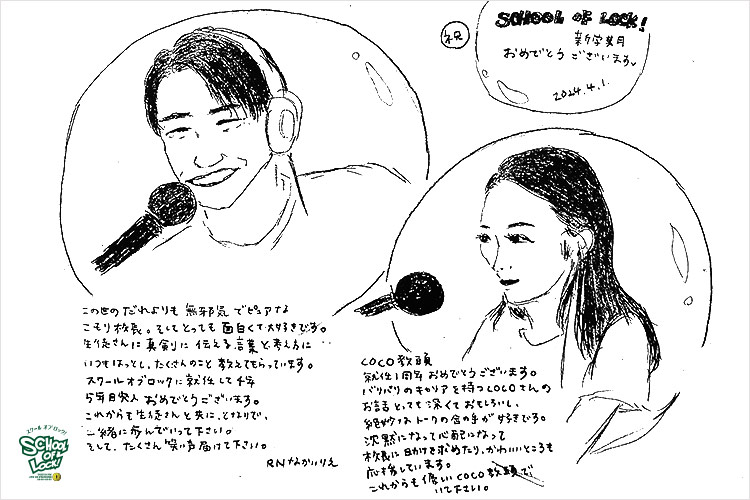 祝
SCHOOL OF LOCK!
新学期
おめでとう ございます。
2024.4.1.
この世の だれよりも 無邪気 でピュアな
こもり校長。そしてとっても 面白くて大好きです。
生徒さんに 真剣に 伝える言葉と考え方に
いつもはっとし、たくさんのこと 教えてもらっています。
スクールオブロックに 就任して 4年
5年目突入 おめでとうございます。
これからも 生徒さんと共に、となりで、
一緒に歩んでいって下さい。
そして、たくさん 笑い声届けて下さい。
RNなかいりえ
COCO教頭
就任1周年 おめでとうございます。
バリバリのキャリアを持つCOCOさんの
お話とっても 深くて おもしろいし、
絶妙な トークの合の手が 好きです。
沈黙になって心配になって
校長に助けを求めたり、かわいいところも
応援しています。
これからも 優しい COCO教頭で
いて下さい。
スクール オブ ロック!
SCHOOL
OF
LOCK!